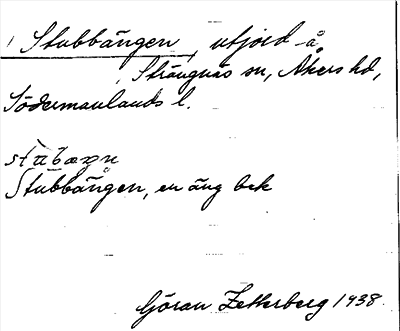 Stubbängen, utjord å,
Strängnäs sn, Åkers hd,
Södermanlands l.
Stubbängen, en äng bek
Göran Zetterberg 1938